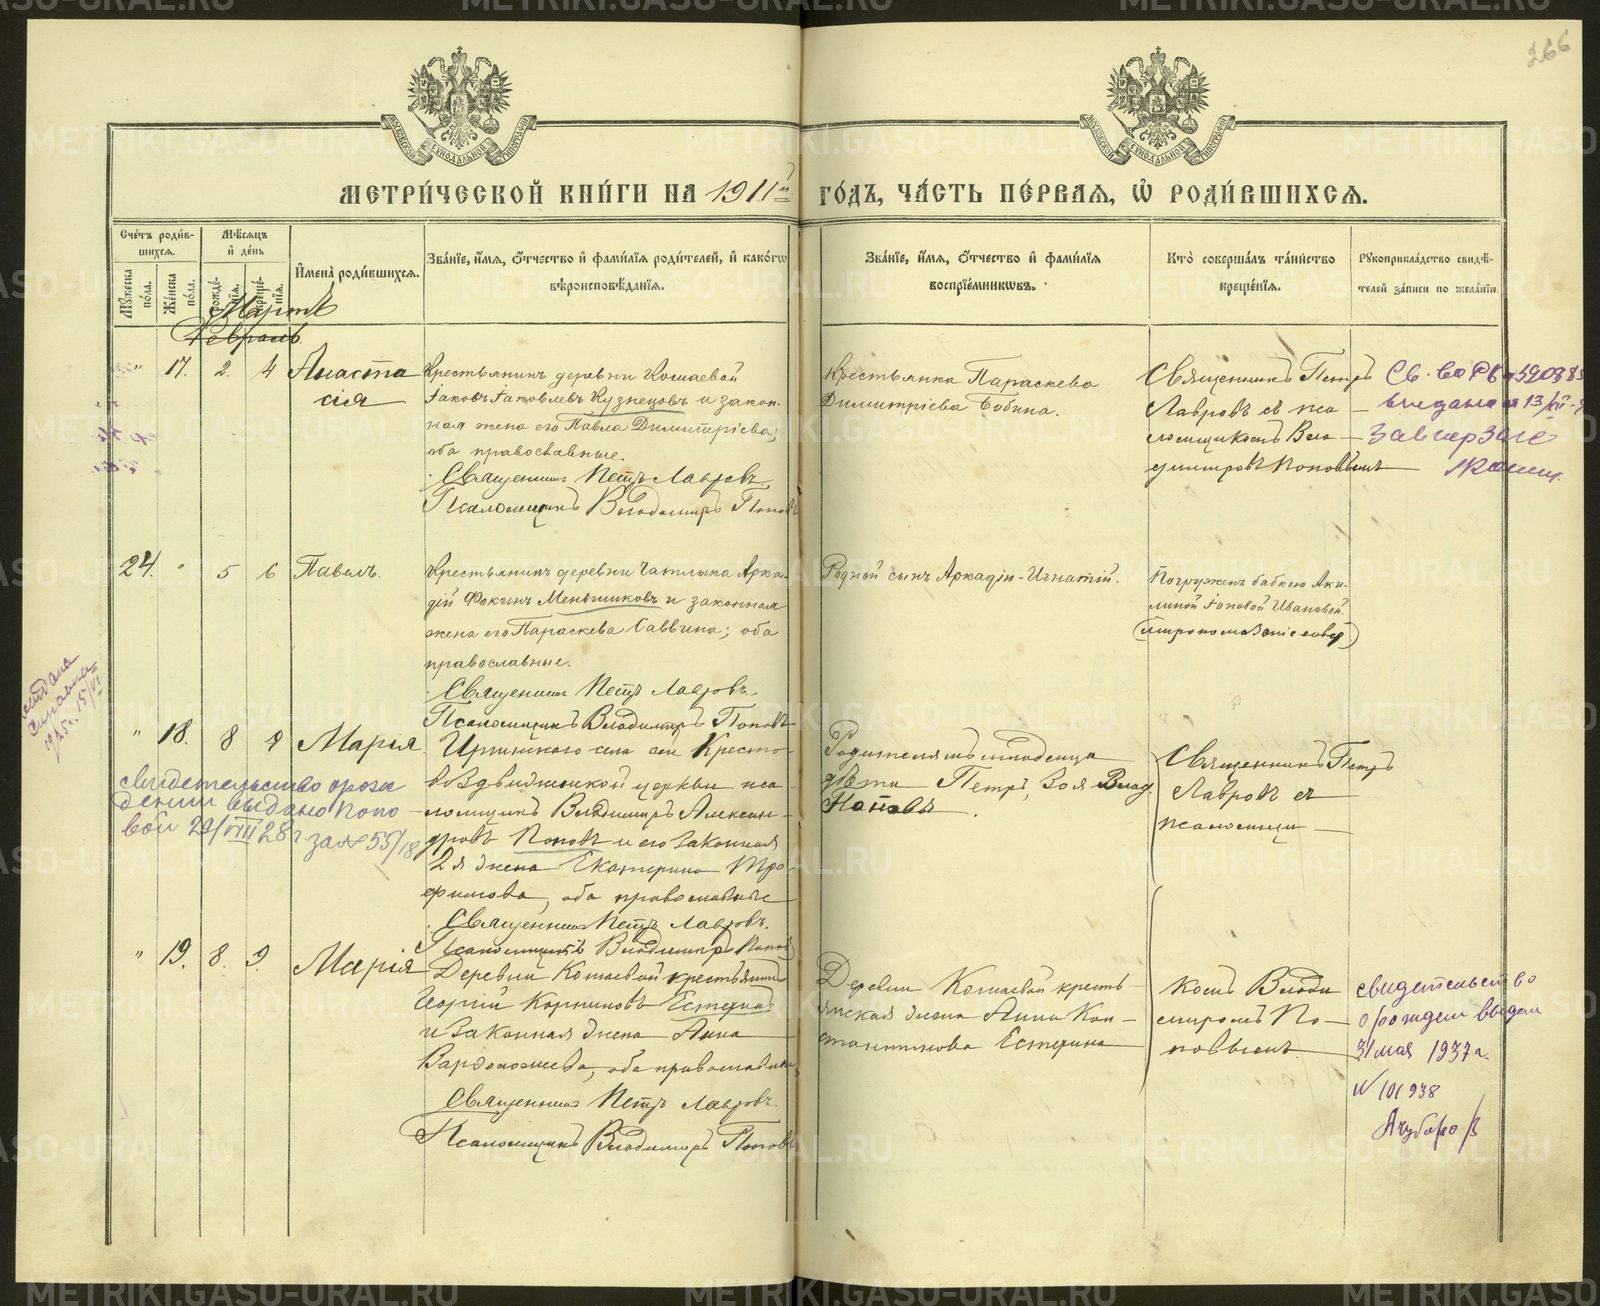 266
МЕТРИ́ЧЕСКОЙ КНИ́ГИ НА 1911й ГО́ДЪ, ЧА́СТЬ ПЕ́РВАЯ, Ѡ РОДИ́ВШИХСЯ.
Сче́тъ роди́в-
шихся.
Мꙋжеска по́ла.
Же́нска по́ла.
Мѣ́сяцъ
и де́нь
рожде́нія.
креще́нія.
И҆мена̀ роди́вшихся.
Зва́нїе, и҆́мя, ѻ҆́тчество и҆ фами́лїя роди́телей, и҆ како́гѡ
вѣроисповѣ́данїя.
Зва́нїе, и҆́мя, ѻ҆́тчество и҆ фами́лїя
воспрїе́мникѡвъ.
Кто̀ соверша́лъ та́инство
креще́нїя.
Рꙋкоприкла́дство свидѣ́-
телей за́писи по жела́нїю.
Мартъ
Февраль
" 17. 2. 4 Анаста
сія
Крестьянинъ деревни Кошаевой
Іаковъ Іаковлевъ Кузнецовъ и закон-
ная жена его Павла Димитріева;
оба православные.
Священникъ Петръ Лавровъ
Псаломщикъ Владимиръ Поповъ
Крестьянка Параскева
Димитріева Бобина.
Священникъ Петръ
Лавровъ съ пса
ломщикомъ Вла
димиромъ Поповымъ
выдано 13/XII
24. " 5 6 Павелъ.
Крестьянинъ деревни Чатлыка Арка-
дій Фокинъ Меньшиковъ и законная
жена его Параскева Саввина; оба
православные.
Священникъ Петръ Лавровъ
Псаломщикъ Владимиръ Поповъ
Родной сынъ Аркадію - Игнатій.
Погруженъ бабкою Аки-
линой Іоновой Ивановой.
выдана
справка
15/VI
" 18. 8 9 Марія.
Иргинского села Кресто-
воздвиженской церкви пса
ломщикъ Владимиръ Алексан-
дровъ Поповъ и его законная
2я жена Екатерина Тро
фимова, оба православные
Священникъ Петръ Лавровъ.
Псаломщикъ Владимиръ Поповъ
Петръ, Зоя Влад.
Поповы.
Священникъ Петръ
Лавровъ съ
псаломщи
свидетельство о рож
дении выдано Попо-
вой 29/VIII 28 г за № 55/18
" 19. 8. 9. Марія
Деревни Кошаевой крестьянинъ
Георгій Корниловъ Естехинъ
и законная жена Анна
Варфоломеева, оба православные
Священникъ Петръ Лавровъ
Псаломщикъ Владимиръ Поповъ
Деревни Кошаевой кресть-
янская жена Анна Кон-
стантинова Естехина
комъ Влади
миромъ По-
повымъ.
свидетельство
о рождении выдан
31 мая 1937 г.
N 101938
METRIKI.GASO-URAL.RU